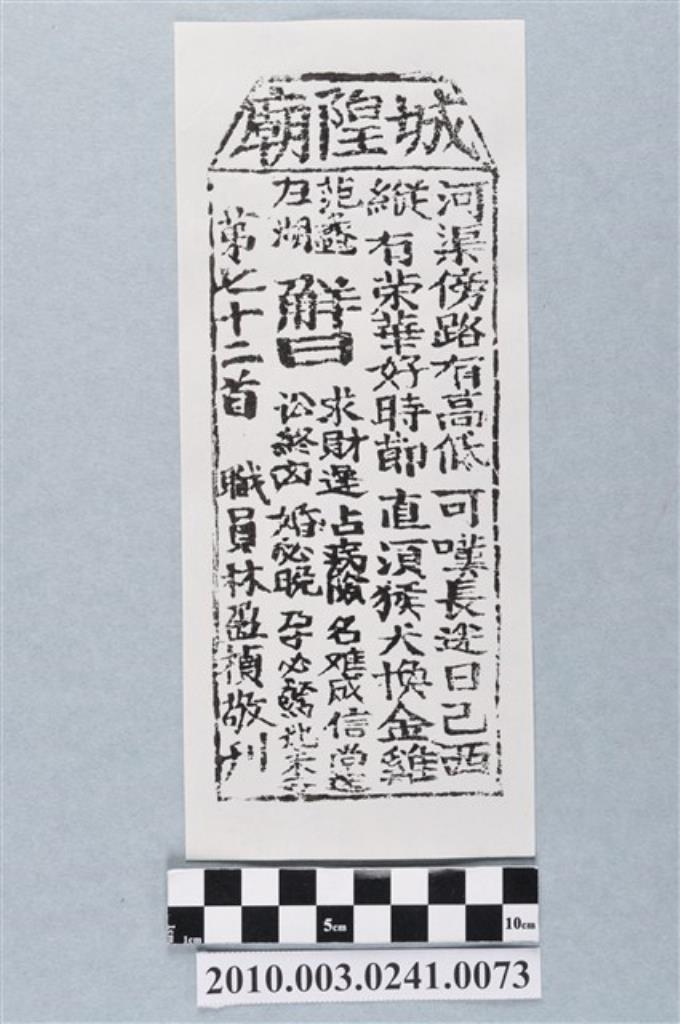 城隍廟
河渠傍路有高低 可嘆長途日已西
縱有荣華好時節 直須猴犬換金雞
范蠡
解曰
求財遲 占病險 名难成 信尚遲
訟終凶 婚必晚 孕必驚
第七十二首 職員林盈禎敬刋
5cm
10cm
1cm
2010.003.0241.0073